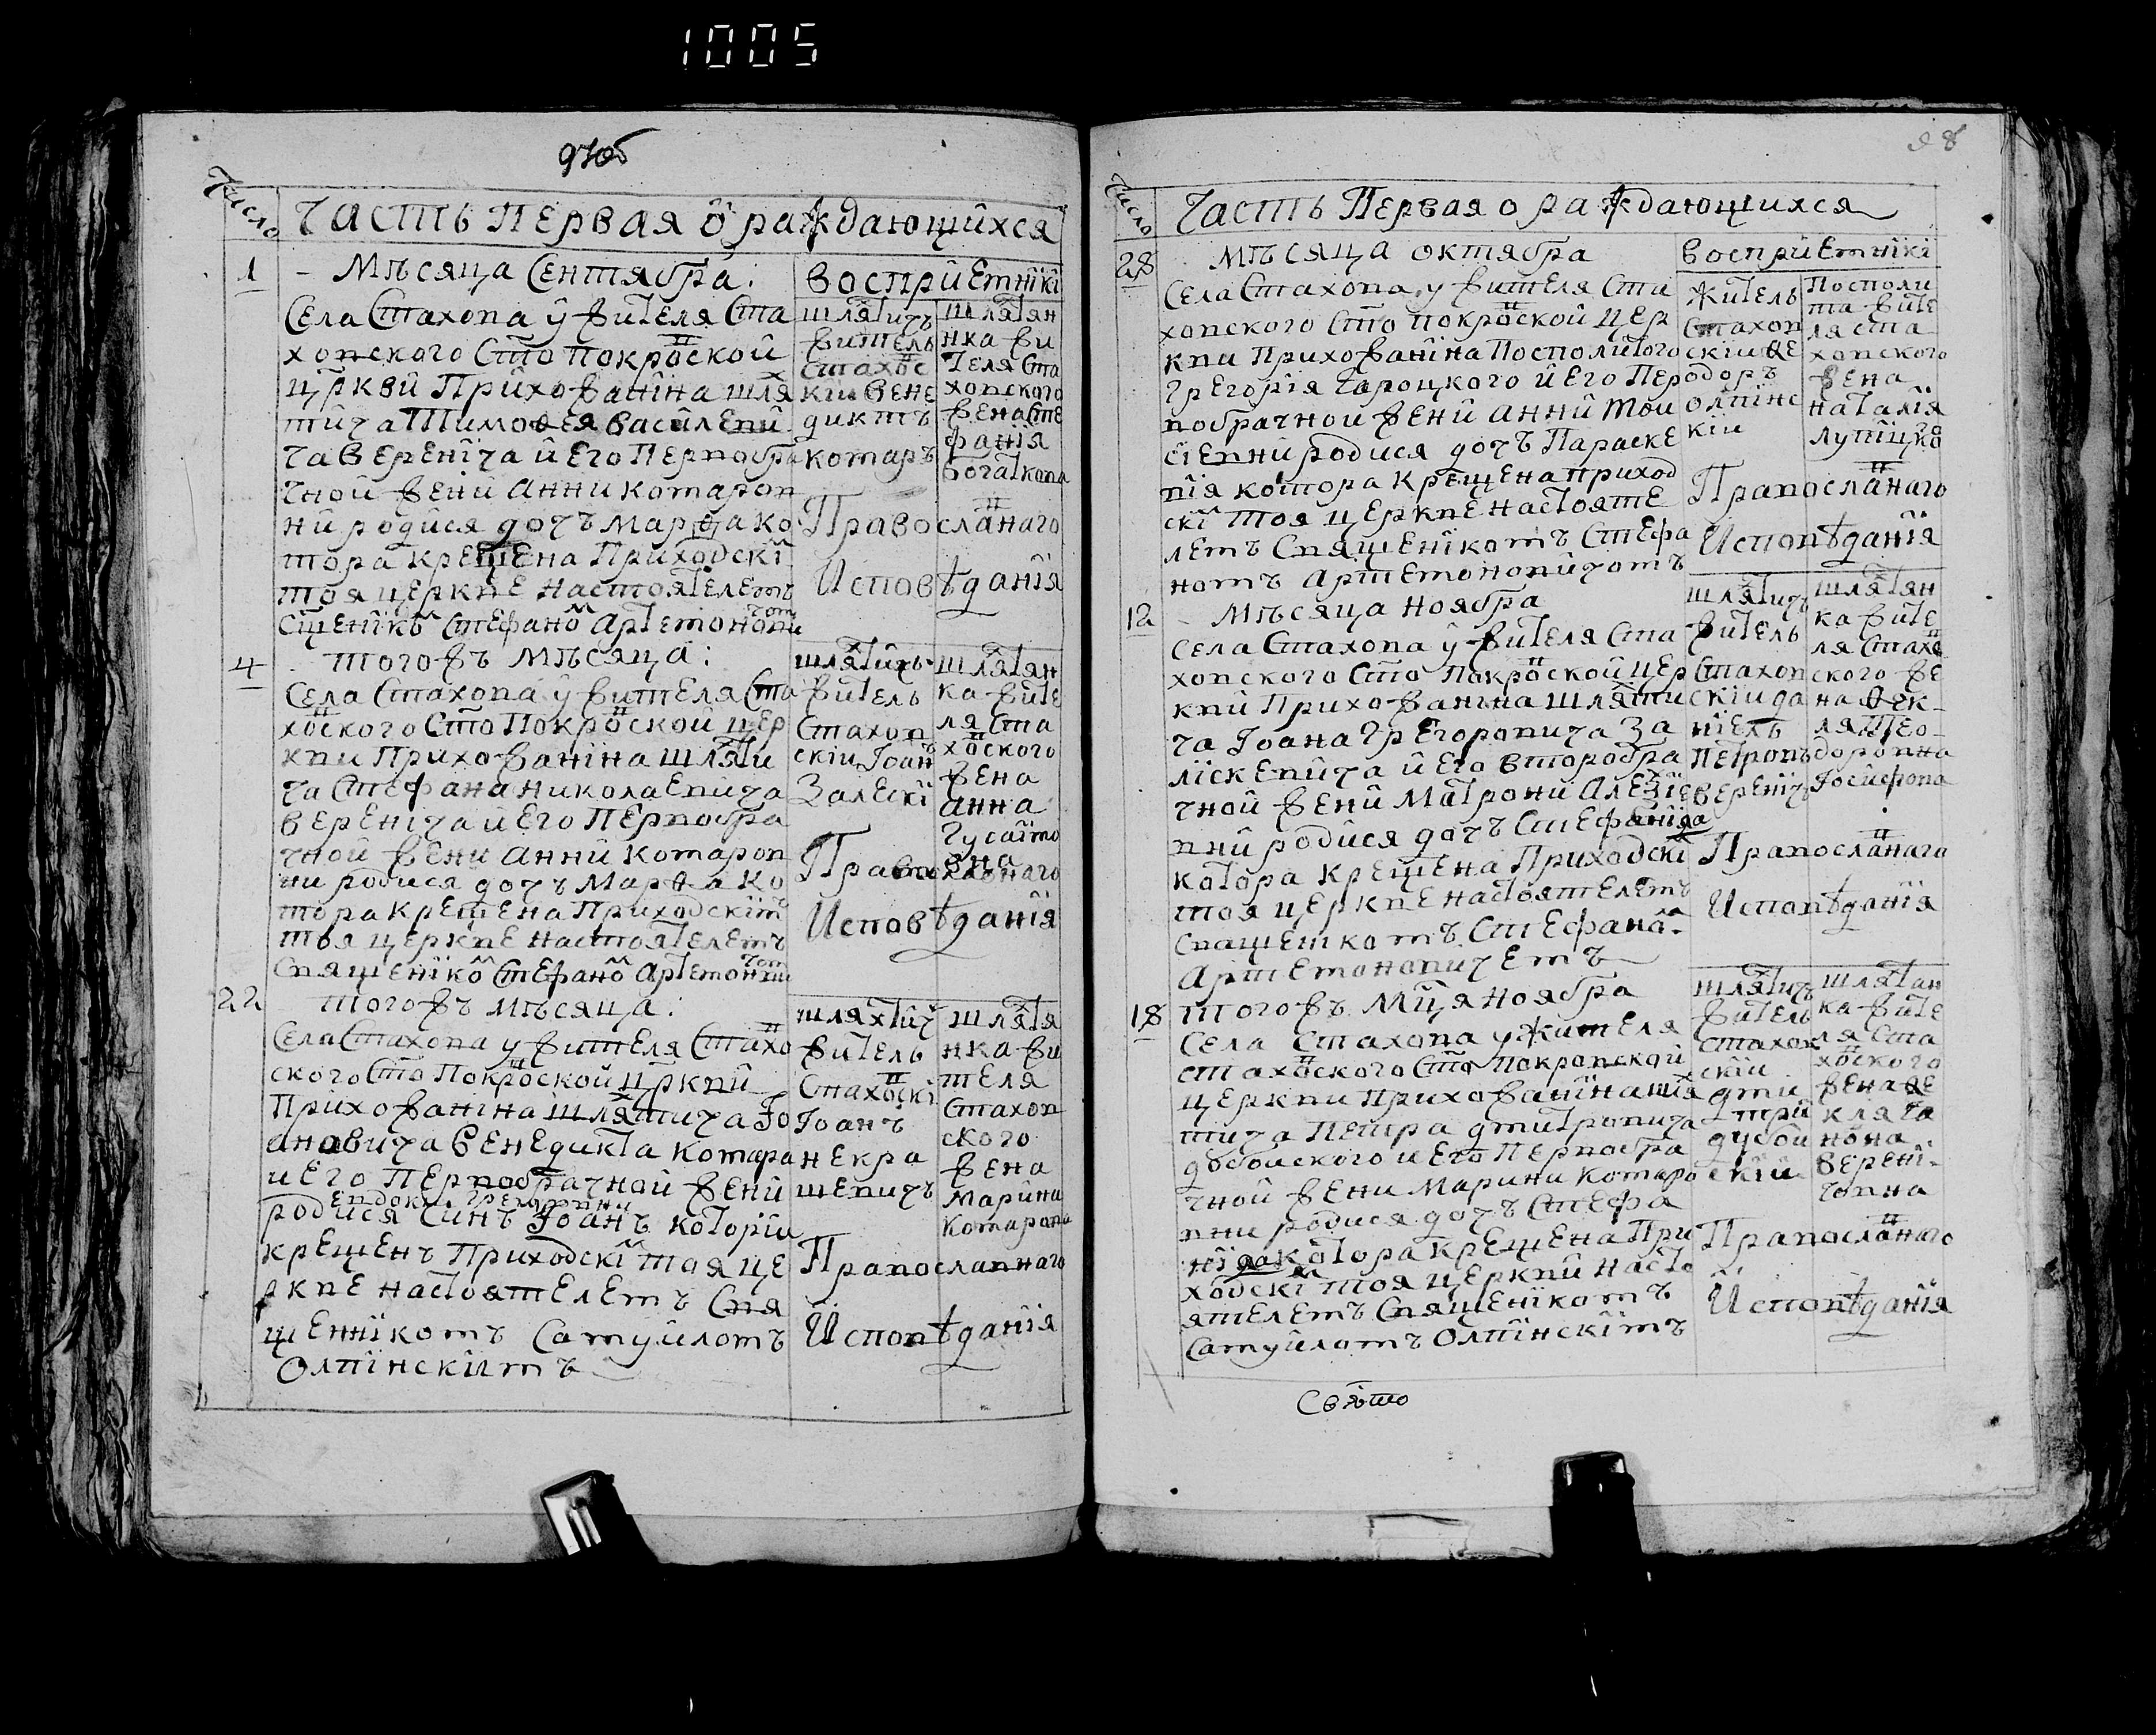 1005
97об
Число
Часть Первая о раждающихся
1
Мѣсяца Сентября:
Села Стахова у жителя Ста
ховского Сто покровской
цркви Прихожанина шлях
тича Тимоѳея Василеви
ча Веренича и его Первобра
чной жени Анни Комаров
ни родися дочъ Марѳа ко
тора крещена Приходскім
тоя церкве настоятелемъ
Сщеніком Стефаном Артемоновичом
восприемніки
шляхтичъ
житель
Стаховс
кии Бене
диктъ
комаръ
шляхтян
нка жи
теля Ста
ховского
жена Сте
фанія
Богаткова
Православнаго
Исповѣданія
4
тогожъ мѣсяца:
Села Стахова у жителя Ста
ховского Сто Покровской цер
кви Прихожаніна шляхти
ча Стефана николаевича
Веренича и его Первобра
чной жени Анни Комаров
ни родися дочъ Марѳа ко
тора крещена Приходскім
тоя церкве настоятелемъ
Священіком Стефаном Артемоновичом
шляхтичъ
житель
Стахов
скии Іоан
Залескі
шляхтян
ка жите
ля Ста
ховского
жена
Анна
Православнаго
Исповѣданія
22
тогожъ мѣсяца:
Села Стахова у жителя Стахов
ского Сто Покровской цркви
Прихожаніна шляхтича Іо
ановича Бенедикта Комара
и его Первобрачной жени
Евдокиі Грегоровни
родися Синъ Іоанъ которіи
крещенъ Приходскім тоя це
ркве настоятелемъ Свя
щеннікомъ Самуиломъ
Олпінскіимъ
шляхтич
житель
Стаховскі
Іоанъ
некра
шевичъ
шляхтя
нка жи
теля
Стахов
ского
жена
марина
Комарова
Православнаго
Исповѣданія
98
Число
Часть Первая о раждающихся
28
мѣсяца октября
Села Стахова у жителя Ста
ховского Сто покровской цер
кви Прихожаніна Посполитого
Грегорія Гароцкого и его Пер
вобрачной жени Анни Мои
сіевни родися дочъ Параске
вія котора крещена приход
скім тоя церкве настояте
лемъ Священікомъ Стефа
номъ Артемоновичомъ
восприемнікі
житель
Стахов
скіи Ѳе
одоръ
олпінс
кіи
Посполи
та жите
ля ста
ховского
жена
наталія
лупіцкого
Православнаго
Исповѣданія
12
Мѣсяца ноября
Села Стахова у жителя Ста
ховского Сто Покровской цер
кви Прихожанина шляхти
ча Іоана Грегоровича За
ліскевича и его второбра
чной жени Матрони Алексіе
вни родися дочъ Стефаніда
котора крещена Приходскім
тоя церкве настоятелемъ
Священикомъ Стефаном
Артемоновичемъ
шляхтичъ
житель
Стахов
скіи да
ніелъ
Петровъ
Вереніч
шляхтян
ка жите
ля Стахов
ского же
на Ѳек
ля Ѳео
доровна
Іосифова
Православнаго
Исповѣданія
18
тогожъ мця ноября
Села Стахова у жителя
Стаховского Сто Покровской
церкви Прихожаніна шлях
тича Петра дмитровича
дубоиского и его Первобра
чной жени Марини Комаро
вни родися дочъ Стефа
ніда котора крещена При
ходскім тоя церкви насто
ятелемъ Священікомъ
Самуиломъ Олпінскімъ
шляхтичъ
житель
Стахов
скіи
дми
трии
дубои
скіи
шляхтян
ка жите
ля Ста
ховского
жена Ѳе
кля Га
нона
Верені
човна
Православнаго
Исповѣданія